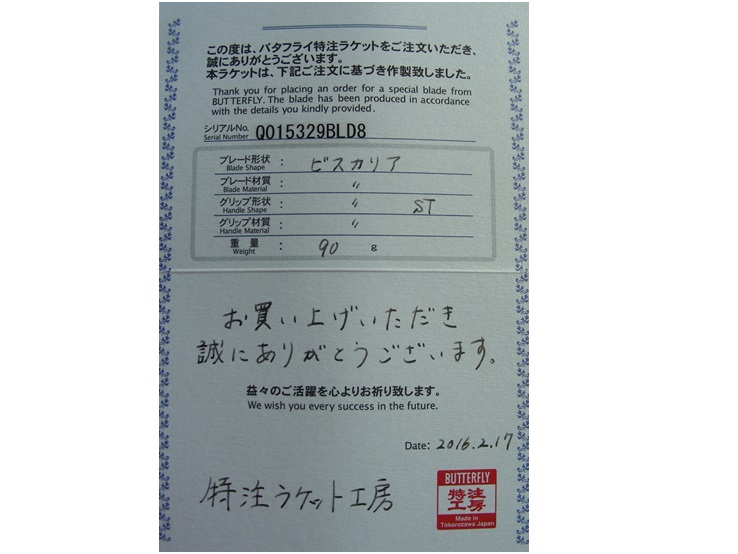 この度は、バタフライ特注ラケットをご注文いただき、
誠にありがとうございます。
本ラケットは、下記ご注文に基づき作製致しました。
Thank you for placing an order for a special blade from
BUTTERFLY. The blade has been produced in accordance
with the details you kindly provided.
シリアルNo. Q015329BLD8
Serial Number
ブレード形状 : ビスカリア
Blade Shape
ブレード材質 : 〃
Blade Material
グリップ形状 : 〃 ST
Handle Shape
グリップ材質 : 〃
Handle Material
重量 : 90 g
Weight
お買い上げいただき
誠にありがとうございます。
益々のご活躍を心よりお祈り致します。
We wish you every success in the future.
Date: 2016.2.17
特注ラケット工房
BUTTERFLY
特注
工房
Made in
Tokorozawa Japan